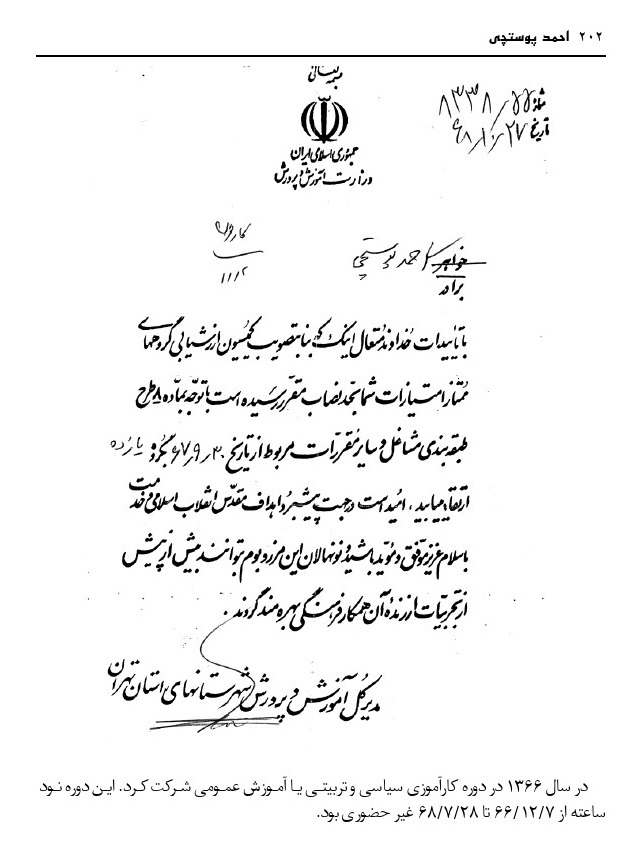 ۲۰۲ احمد پوستچی
بسمه تعالی
جمهوری اسلامی ایران
وزارت آموزش و پرورش
شماره ۸۳۳۸/۵۵
تاریخ ۶۸/۱۰/۲۷
خواهر احمد پوستچی
برادر
۱۱/۲
با تاییدات خداوند متعال اینک که بنا بتصویب کمیسیون ارزشیابی گروههای
ممتاز امتیازات شما بحد نصاب مقرر رسیده است با توجه بماده ۸ طرح
طبقه بندی مشاغل و سایر مقررات مربوط از تاریخ ۶۷/۹/۳۰ بگروه یازده
ارتقاء مییابید ، امید است در جهت پیشبرد اهداف مقدس انقلاب اسلامی و خدمت
باسلام عزیز موفق و موید باشید و نونهالان این مرز و بوم بتوانند بیش از پیش
از تجربیات ارزنده آن همکار فرهنگی بهره مند گردند .
مدیر کل آموزش و پرورش شهرستانهای استان تهران
در سال ۱۳۶۶ در دوره کارآموزی سیاسی و تربیتی یا آموزش عمومی شرکت کرد. این دوره نود
ساعته از ۶۶/۱۲/۷ تا ۶۸/۷/۲۸ غیر حضوری بود.